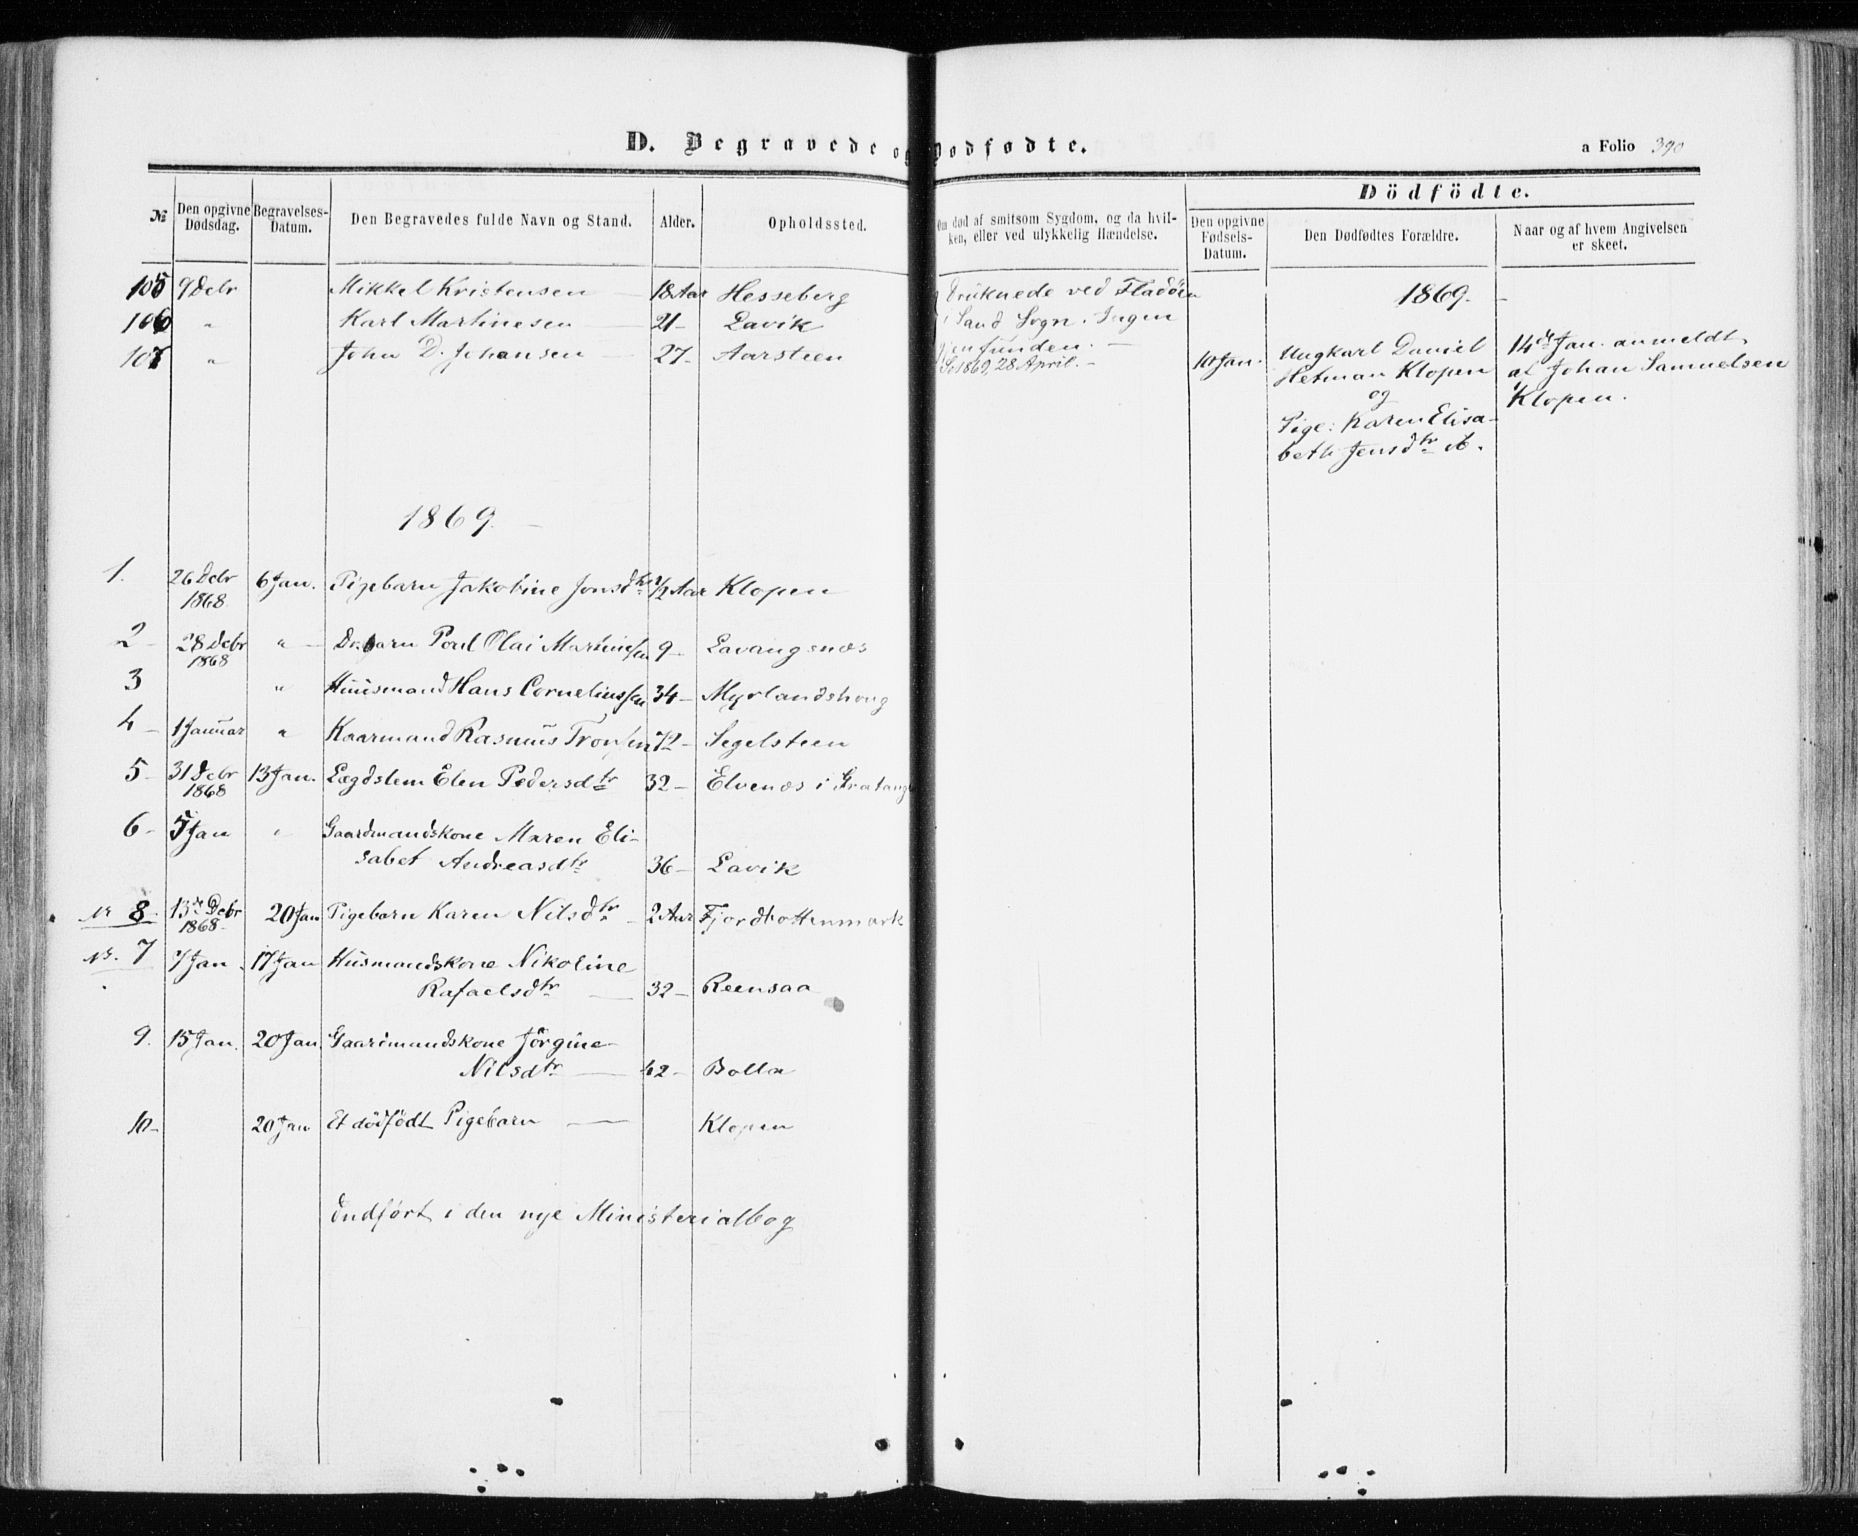 D. Begravede og Dødfødte.
a Folio 390
№
Den opgivne Dødsdag.
Begravelses-Datum.
Den Begravedes fulde Navn og Stand.
Alder.
Opholdssted.
Om død af smitsom Sygdom, og da hvil-
ken, eller ved ulykkelig Hændelse.
Dödfödte.
Den opgivne Fødsels-Datum.
Den Dødfødtes Forældre.
Naar og af hvem Angivelsen
er skeet.
105 9 Debr Mikkel Kristensen — 18 Aar Hesseberg
106 " Karl Martinesen — 21 - Lavik
107 " John D. Johansen — 27 - Aarsteen
Druknede ved Fladøen
i Sand Sogn. Ingen
gjenfunden. —
Se 1869, 28 April. -
1869. -
10 Jan. Ungkarl Daniel
Hetman Klopen
og
Pige: Karen Elisa-
beth Jensdtr
14de Jan. anmeldt
af Johan Samuelsen
Klopen.
1869. —
1. 26 Debr 1868. 6 Jan. Pigebarn Jakobine Jonsdtr 1/2 Aar Klopen
2 - 28 Debr 1868 " - Drbarn Poul Olai Martinessen 9 - Lavangsnæs
3 " Huusmand Hans Corneliussen 34 - Myrlandshoug
4 - 1 Januar " Kaarmand Rasmus Tronsen 72 - Segelsteen
5 - 31 Debr 1868 13 Jan. Lægdslem Elen Pedersdtr 32 - Elvenæs i Gratang
6 - 5 Jan " Gaardmandskone Maren Eli-
sabet Andreasdtr 36 - Lavik
Nr 8. 13de Debr 1868. 20 Jan Pigebarn Karen Nilsdtr - 2 Aar Fjordbottenmark
Nr. 7 7 Jan. 17 Jan Husmandskone Nikoline
Rafaelsdtr — 32 - Reensaa
9. 15 Jan. 20 Jan. Gaardmandskone Jörgine
Nilsdtr — 42 - Bolla
10 - 20 Jan Et dödfödt Pigebarn — Klopen
Indført i den nye Ministerialbog